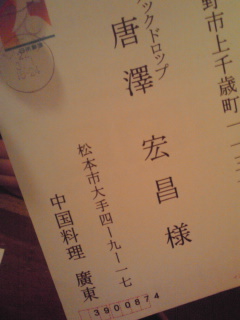 野市上千歳町一一
ックドロップ
唐澤 宏昌様
松本市大手四ー九ー一七
中国料理 廣東
3900874